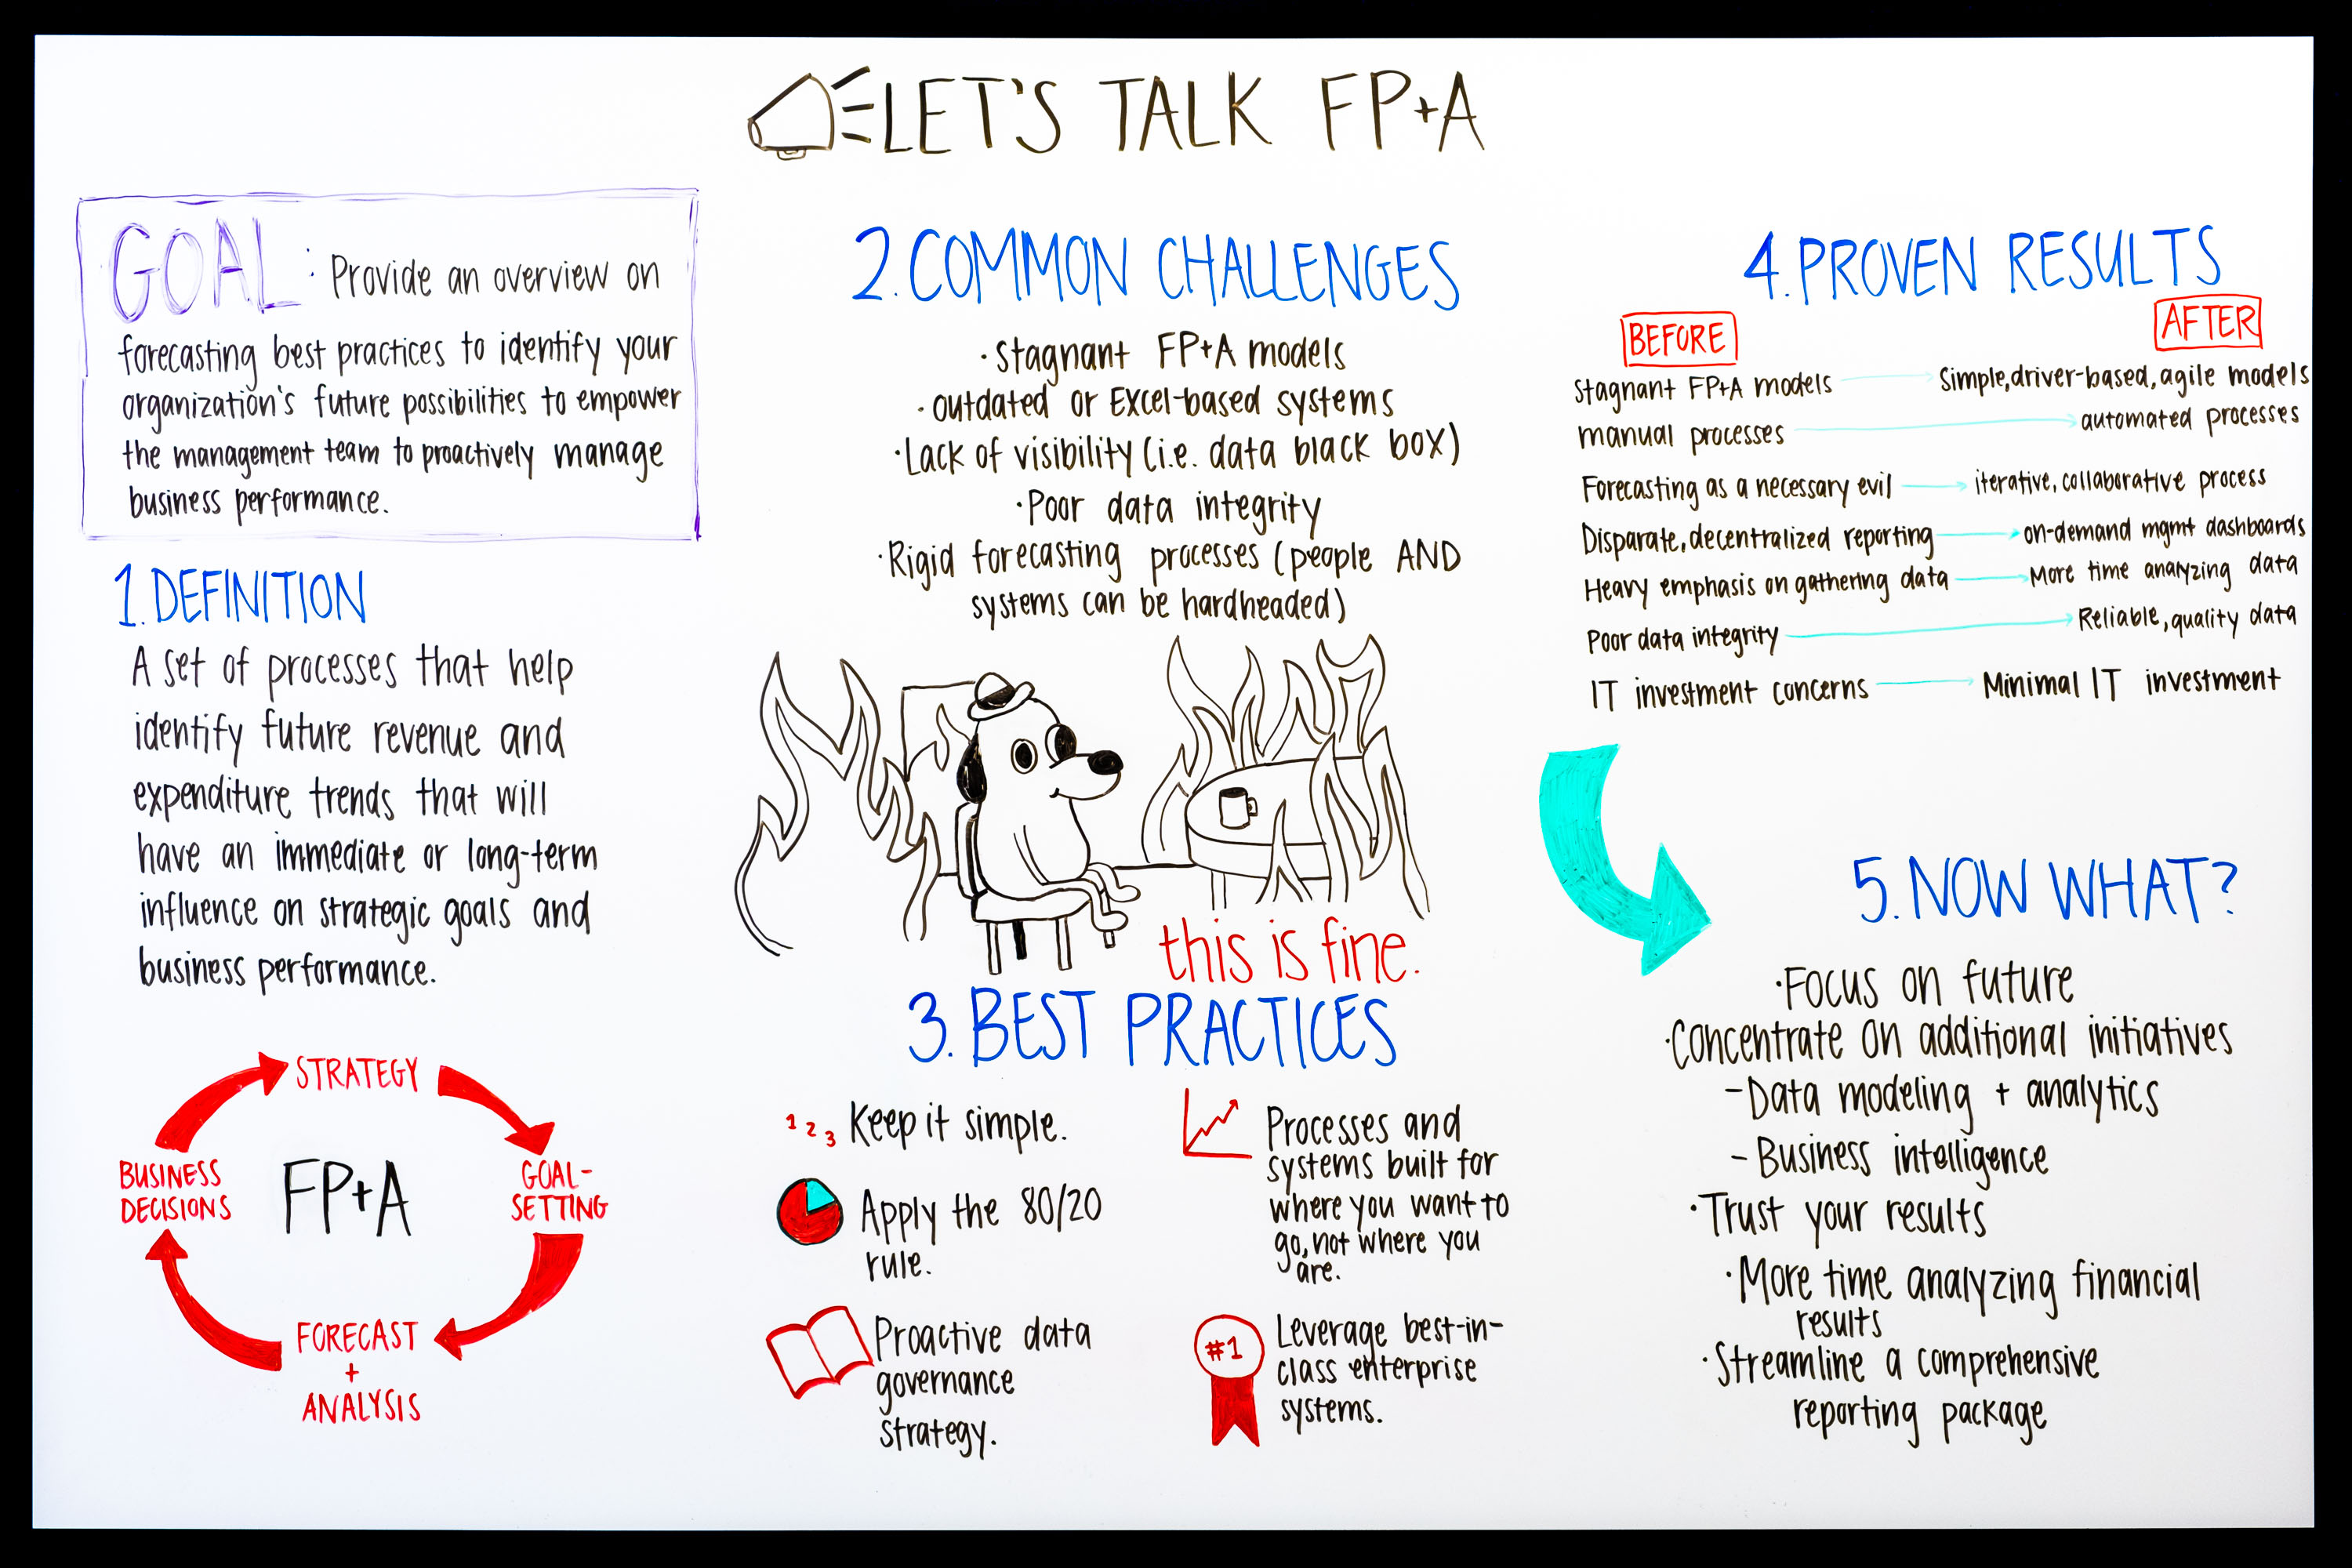 LET'S TALK FP+A
GOAL: Provide an overview on
forecasting best practices to identify your
organization's future possibilities to empower
the management team to proactively manage
business performance.
1. DEFINITION
A set of processes that help
identify future revenue and
expenditure trends that will
have an immediate or long-term
influence on strategic goals and
business performance.
STRATEGY
GOAL-
SETTING
FORECAST
+
ANALYSIS
BUSINESS
DECISIONS
FP+A
2. COMMON CHALLENGES
·Stagnant FP+A models
·outdated or Excel-based systems
·Lack of visibility (i.e. data black box)
·Poor data integrity
·Rigid forecasting processes (people AND
systems can be hardheaded)
this is fine.
3. BEST PRACTICES
1 2 3 Keep it simple.
Apply the 80/20
rule.
Proactive data
governance
strategy.
Processes and
systems built for
where you want to
go, not where you
are.
#1
Leverage best-in-
class enterprise
systems.
4. PROVEN RESULTS
BEFORE AFTER
Stagnant FP+A models → Simple, driver-based, agile models
manual processes → automated processes
Forecasting as a necessary evil → iterative, collaborative process
Disparate, decentralized reporting → on-demand mgmt dashboards
Heavy emphasis on gathering data → More time analyzing data
Poor data integrity → Reliable, quality data
IT investment concerns → Minimal IT investment
5. NOW WHAT?
·Focus on future
·Concentrate on additional initiatives
- Data modeling + analytics
- Business intelligence
·Trust your results
·More time analyzing financial
results
·Streamline a comprehensive
reporting package